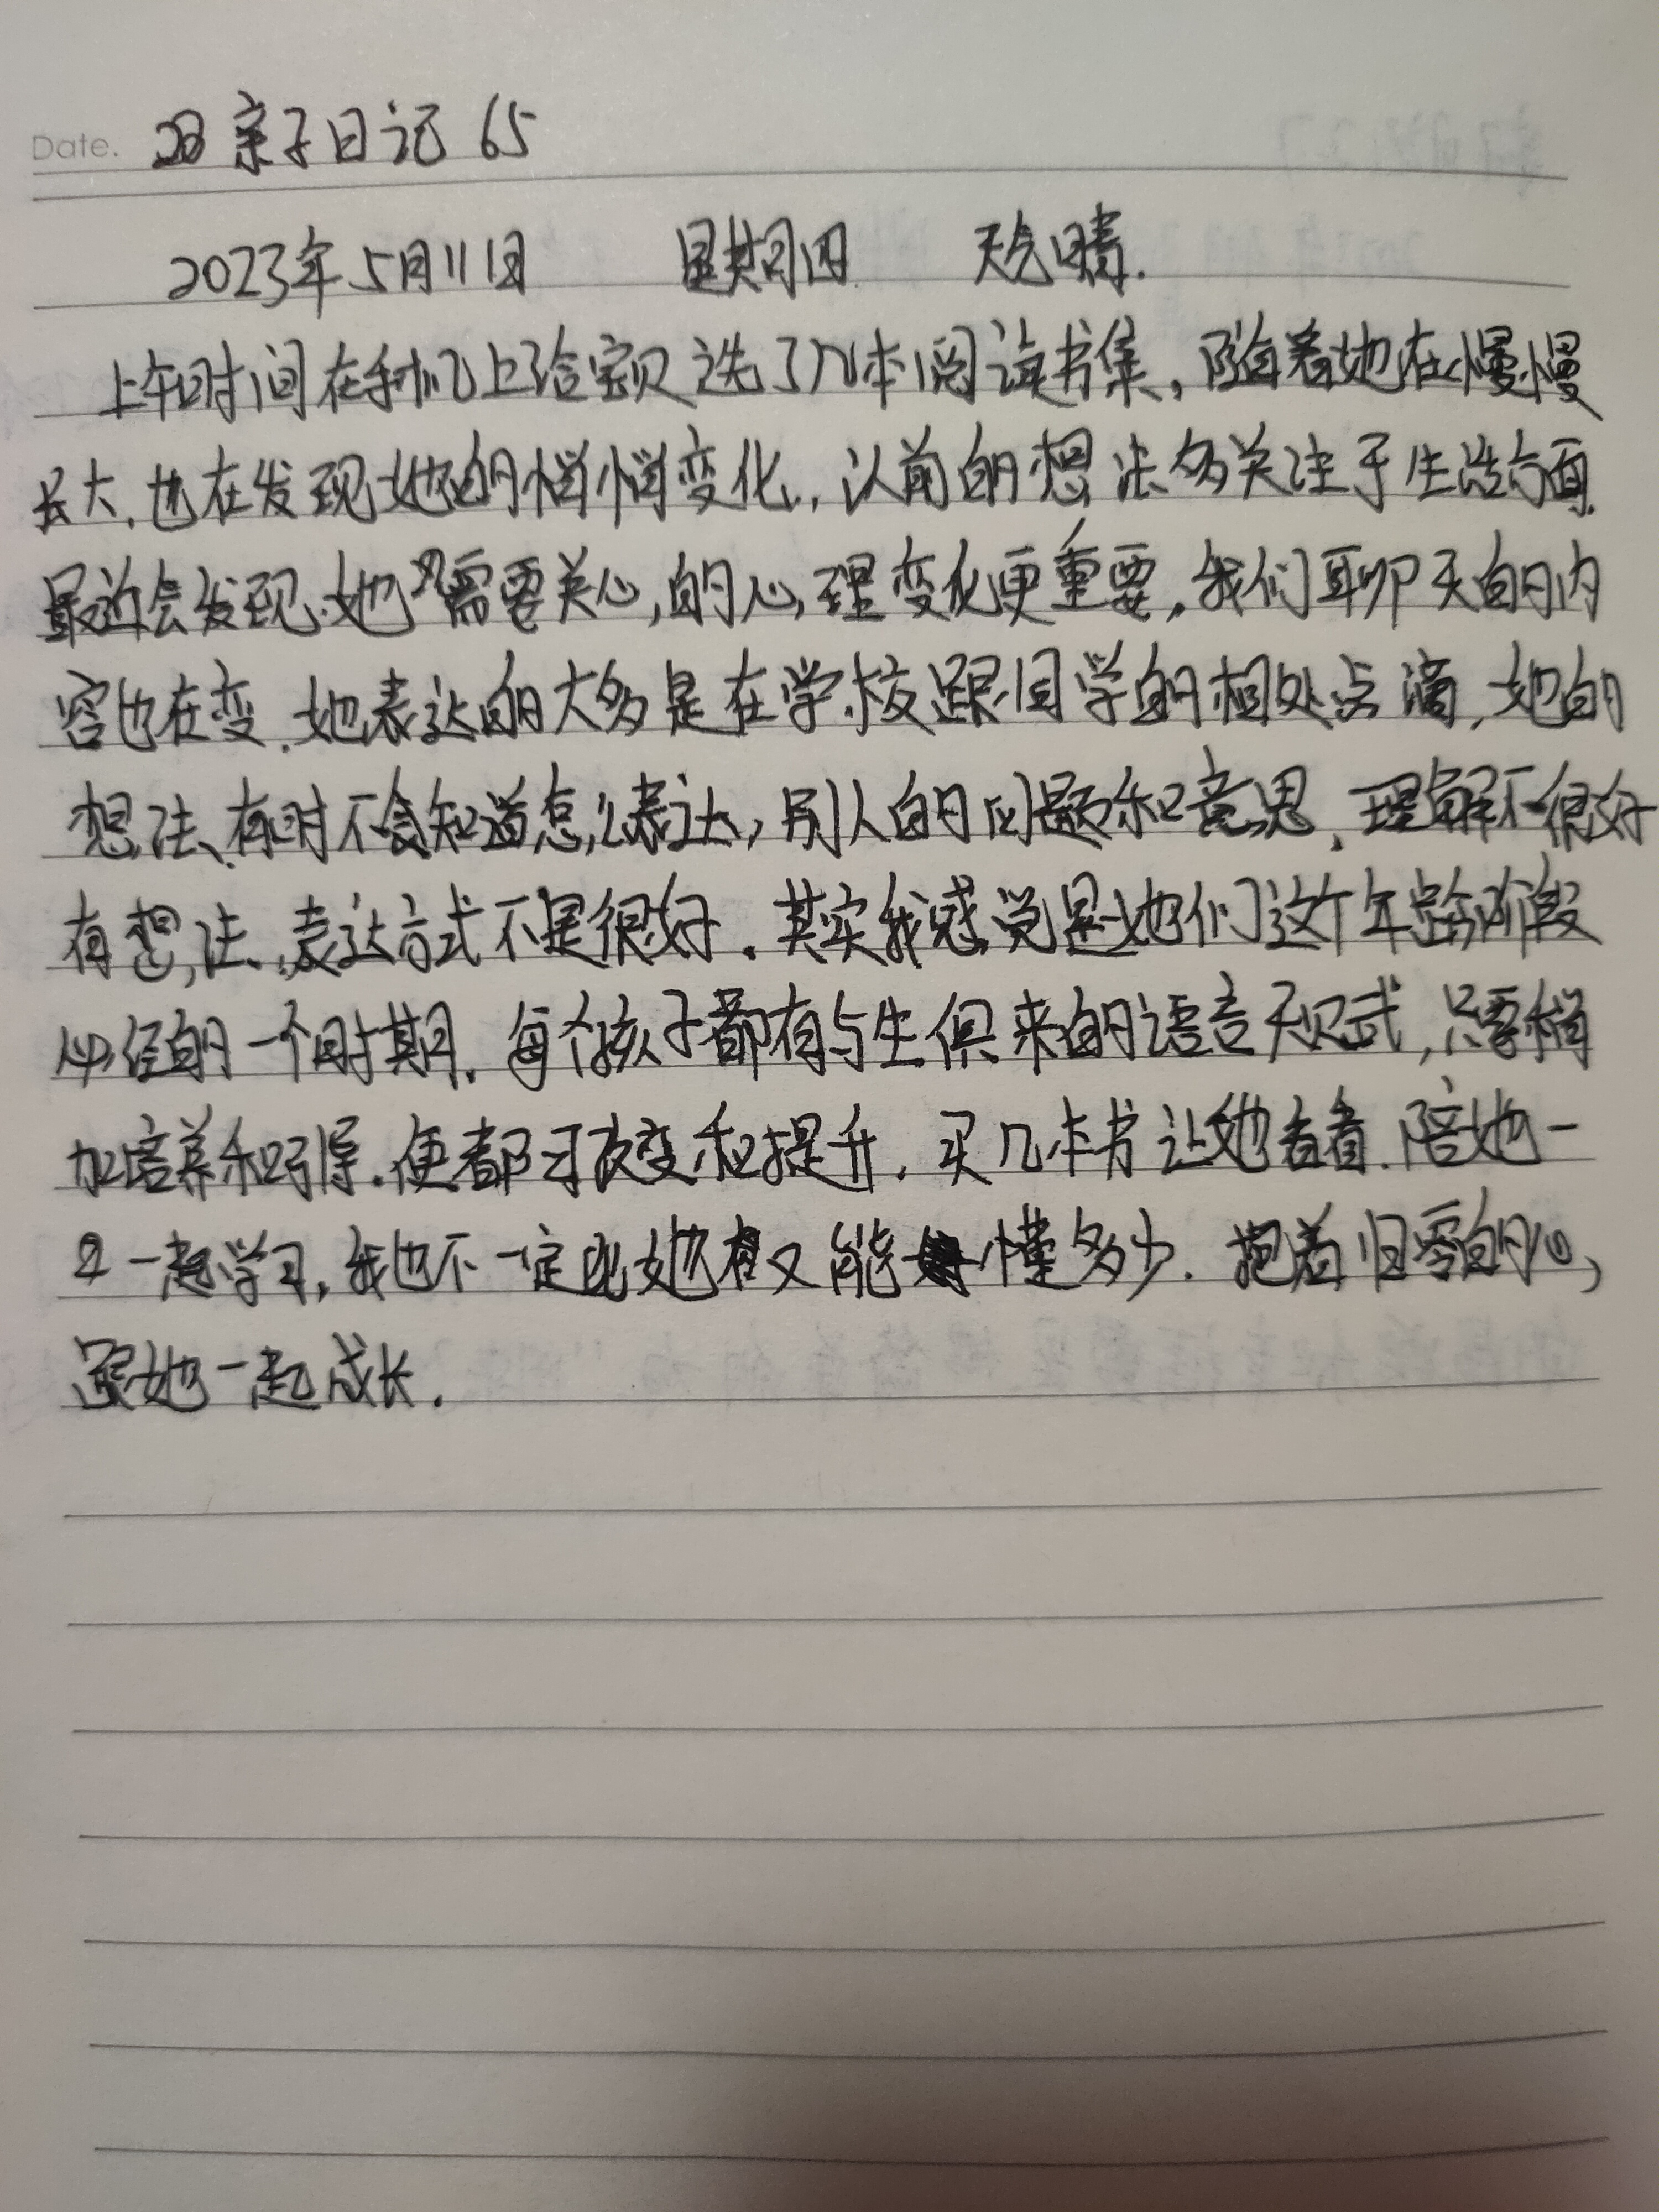 Date. 亲子日记 65
2023年5月11日 星期四 天气晴.
上午时间在手机上给宝贝选了几本阅读书集,随着她在慢慢
长大,也在发现她的悄悄变化,以前的想法多关注于生活方面.
最近会发现.她需要关心,的心理变化更重要,我们聊天的内
容也在变.她表达的大多是在学校跟同学的相处点滴,她的
想法、有时不会知道怎么表达,别人的问题和意思,理解不很好
有想法、表达方式不是很好.其实我感觉是她们这个年龄阶段
必经的一个时期.每个孩子都有与生俱来的语言天赋,只要稍
加培养和引导.便都可改变和提升.买几本书让她看看.陪她一
一起学习,我也不一定比她又能懂多少.抱着归零的心,
跟她一起成长.